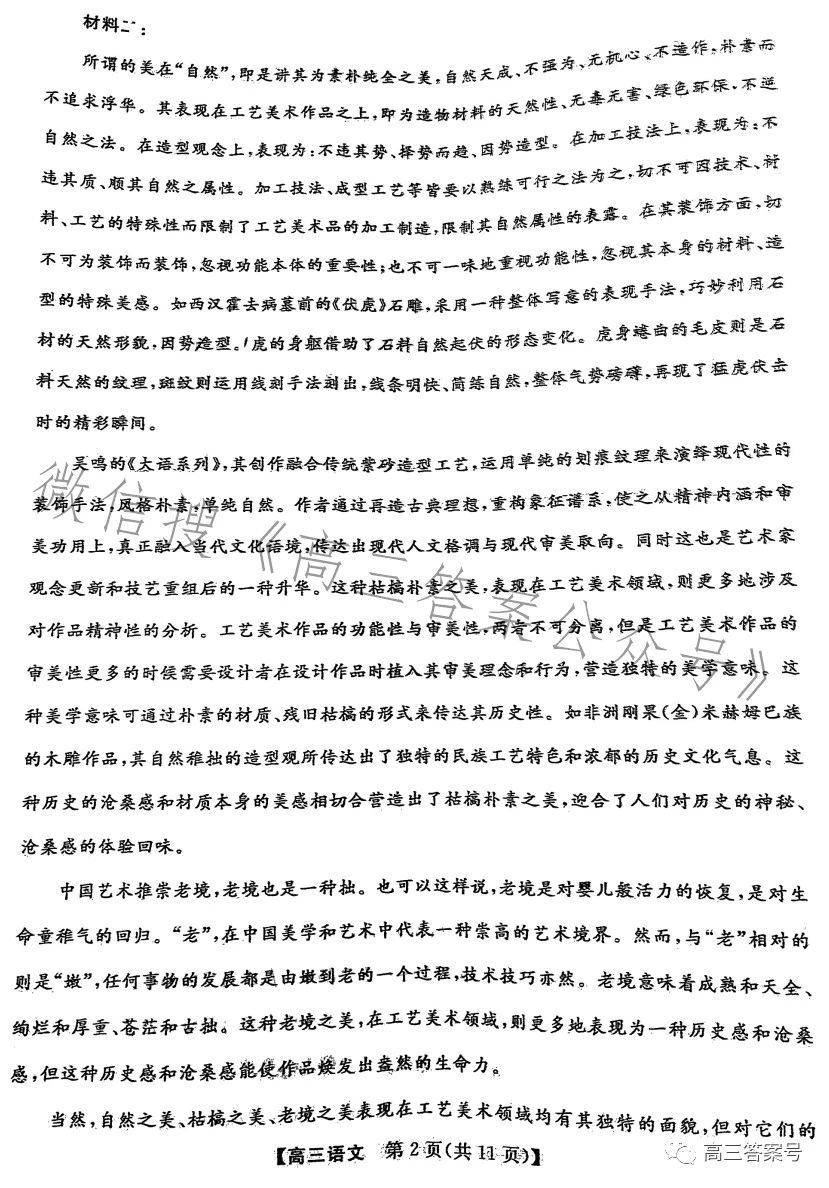 材料二:
所谓的美在“自然”,即是讲其为素朴纯全之美,自然天成、不强为、无机心、不造作,朴素而
不追求浮华。其表现在工艺美术作品之上,即为造物材料的天然性、无毒无害、绿色环保,不逆
自然之法。在造型观念上,表现为:不违其势、择势而趋、因势造型。在加工技法上,表现为:不
违其质、顺其自然之属性。加工技法、成型工艺等皆要以熟练可行之法为之,切不可因技术、材
料、工艺的特殊性而限制了工艺美术品的加工制造,限制其自然属性的表露。在其装饰方面,切
不可为装饰而装饰,忽视功能本体的重要性;也不可一味地重视功能性,忽视其本身的材料、造
型的特殊美感。如西汉霍去病墓前的《伏虎》石雕,采用一种整体写意的表现手法,巧妙利用石
材的天然形貌,因势造型。虎的身躯借助了石料自然起伏的形态变化。虎身蜷曲的毛皮则是石
料天然的纹理,斑纹则运用线刻手法刻出,线条明快、简练自然,整体气势磅礴,再现了猛虎伏击
时的精彩瞬间。
吴鸣的《大语系列》,其创作融合传统紫砂造型工艺,运用单纯的划痕纹理来演绎现代性的
装饰手法,风格朴素,单纯自然。作者通过再造古典理想,重构象征谱系,使之从精神内涵和审
美功用上,真正融入当代文化语境,传达出现代人文格调与现代审美取向。同时这也是艺术家
观念更新和技艺重组后的一种升华。这种枯槁朴素之美,表现在工艺美术领域,则更多地涉及
对作品精神性的分析。工艺美术作品的功能性与审美性,两者不可分离,但是工艺美术作品的
审美性更多的时候需要设计者在设计作品时植入其审美理念和行为,营造独特的美学意味。这
种美学意味可通过朴素的材质、残旧枯槁的形式来传达其历史性。如非洲刚果(金)米赫姆巴族
的木雕作品,其自然稚拙的造型观所传达出了独特的民族工艺特色和浓郁的历史文化气息。这
种历史的沧桑感和材质本身的美感相切合营造出了枯槁朴素之美,迎合了人们对历史的神秘、
沧桑感的体验回味。
中国艺术推崇老境,老境也是一种拙。也可以这样说,老境是对婴儿般活力的恢复,是对生
命童稚气的回归。“老”,在中国美学和艺术中代表一种崇高的艺术境界。然而,与“老”相对的
则是“嫩”,任何事物的发展都是由嫩到老的一个过程,技术技巧亦然。老境意味着成熟和天全、
绚烂和厚重、苍茫和古拙。这种老境之美,在工艺美术领域,则更多地表现为一种历史感和沧桑
感,但这种历史感和沧桑感能使作品焕发出盎然的生命力。
当然,自然之美、枯槁之美、老境之美表现在工艺美术领域均有其独特的面貌,但对它们的
【高三语文 第2页(共11页)】
微信搜《高三答案公众号》
高三答案号